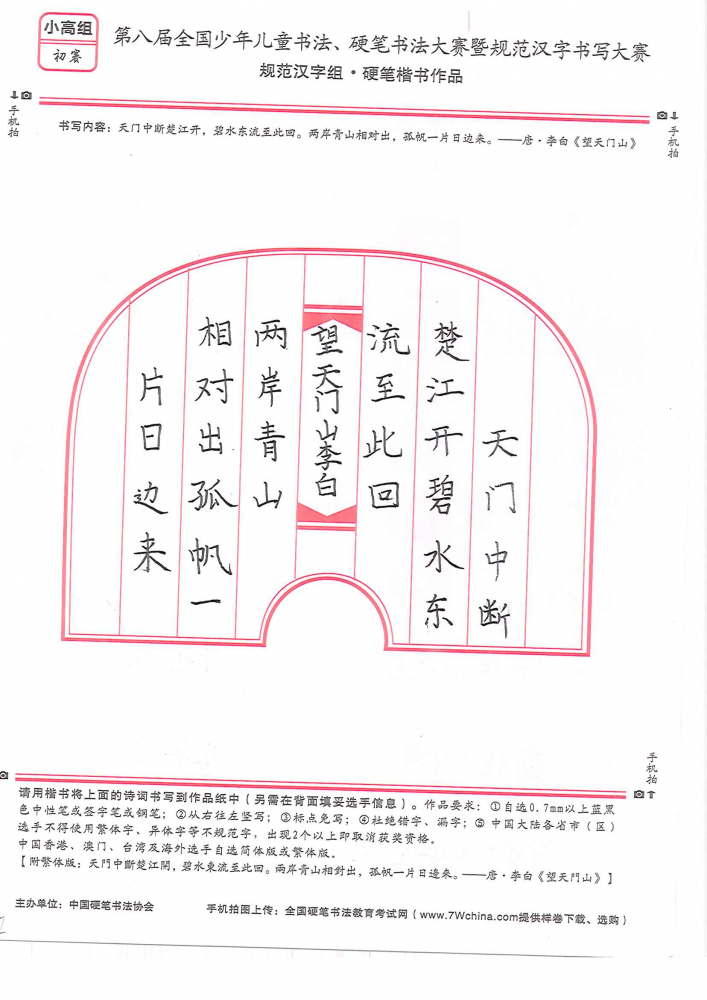 小高组
初赛
第八届全国少年儿童书法、硬笔书法大赛暨规范汉字书写大赛
规范汉字组·硬笔楷书作品
手机拍
手机拍
书写内容：天门中断楚江开，碧水东流至此回。两岸青山相对出，孤帆一片日边来。——唐·李白《望天门山》
天门中断
楚江开碧水东
流至此回
望天门山李白
两岸青山
相对出孤帆一
片日边来
手机拍
请用楷书将上面的诗词书写到作品纸中（另需在背面填妥选手信息）。作品要求：①自选0.7mm以上蓝黑
色中性笔或签字笔或钢笔；②从右往左竖写；③标点免写；④杜绝错字、漏字；⑤中国大陆各省市（区）
选手不得使用繁体字、异体字等不规范字，出现2个以上即取消获奖资格。
中国香港、澳门、台湾及海外选手自选简体版或繁体版。
【附繁体版：天門中斷楚江開，碧水東流至此回。兩岸青山相對出，孤帆一片日邊來。——唐·李白《望天門山》】
主办单位：中国硬笔书法协会
手机拍图上传：全国硬笔书法教育考试网（www.7Wchina.com提供样卷下载、选购）